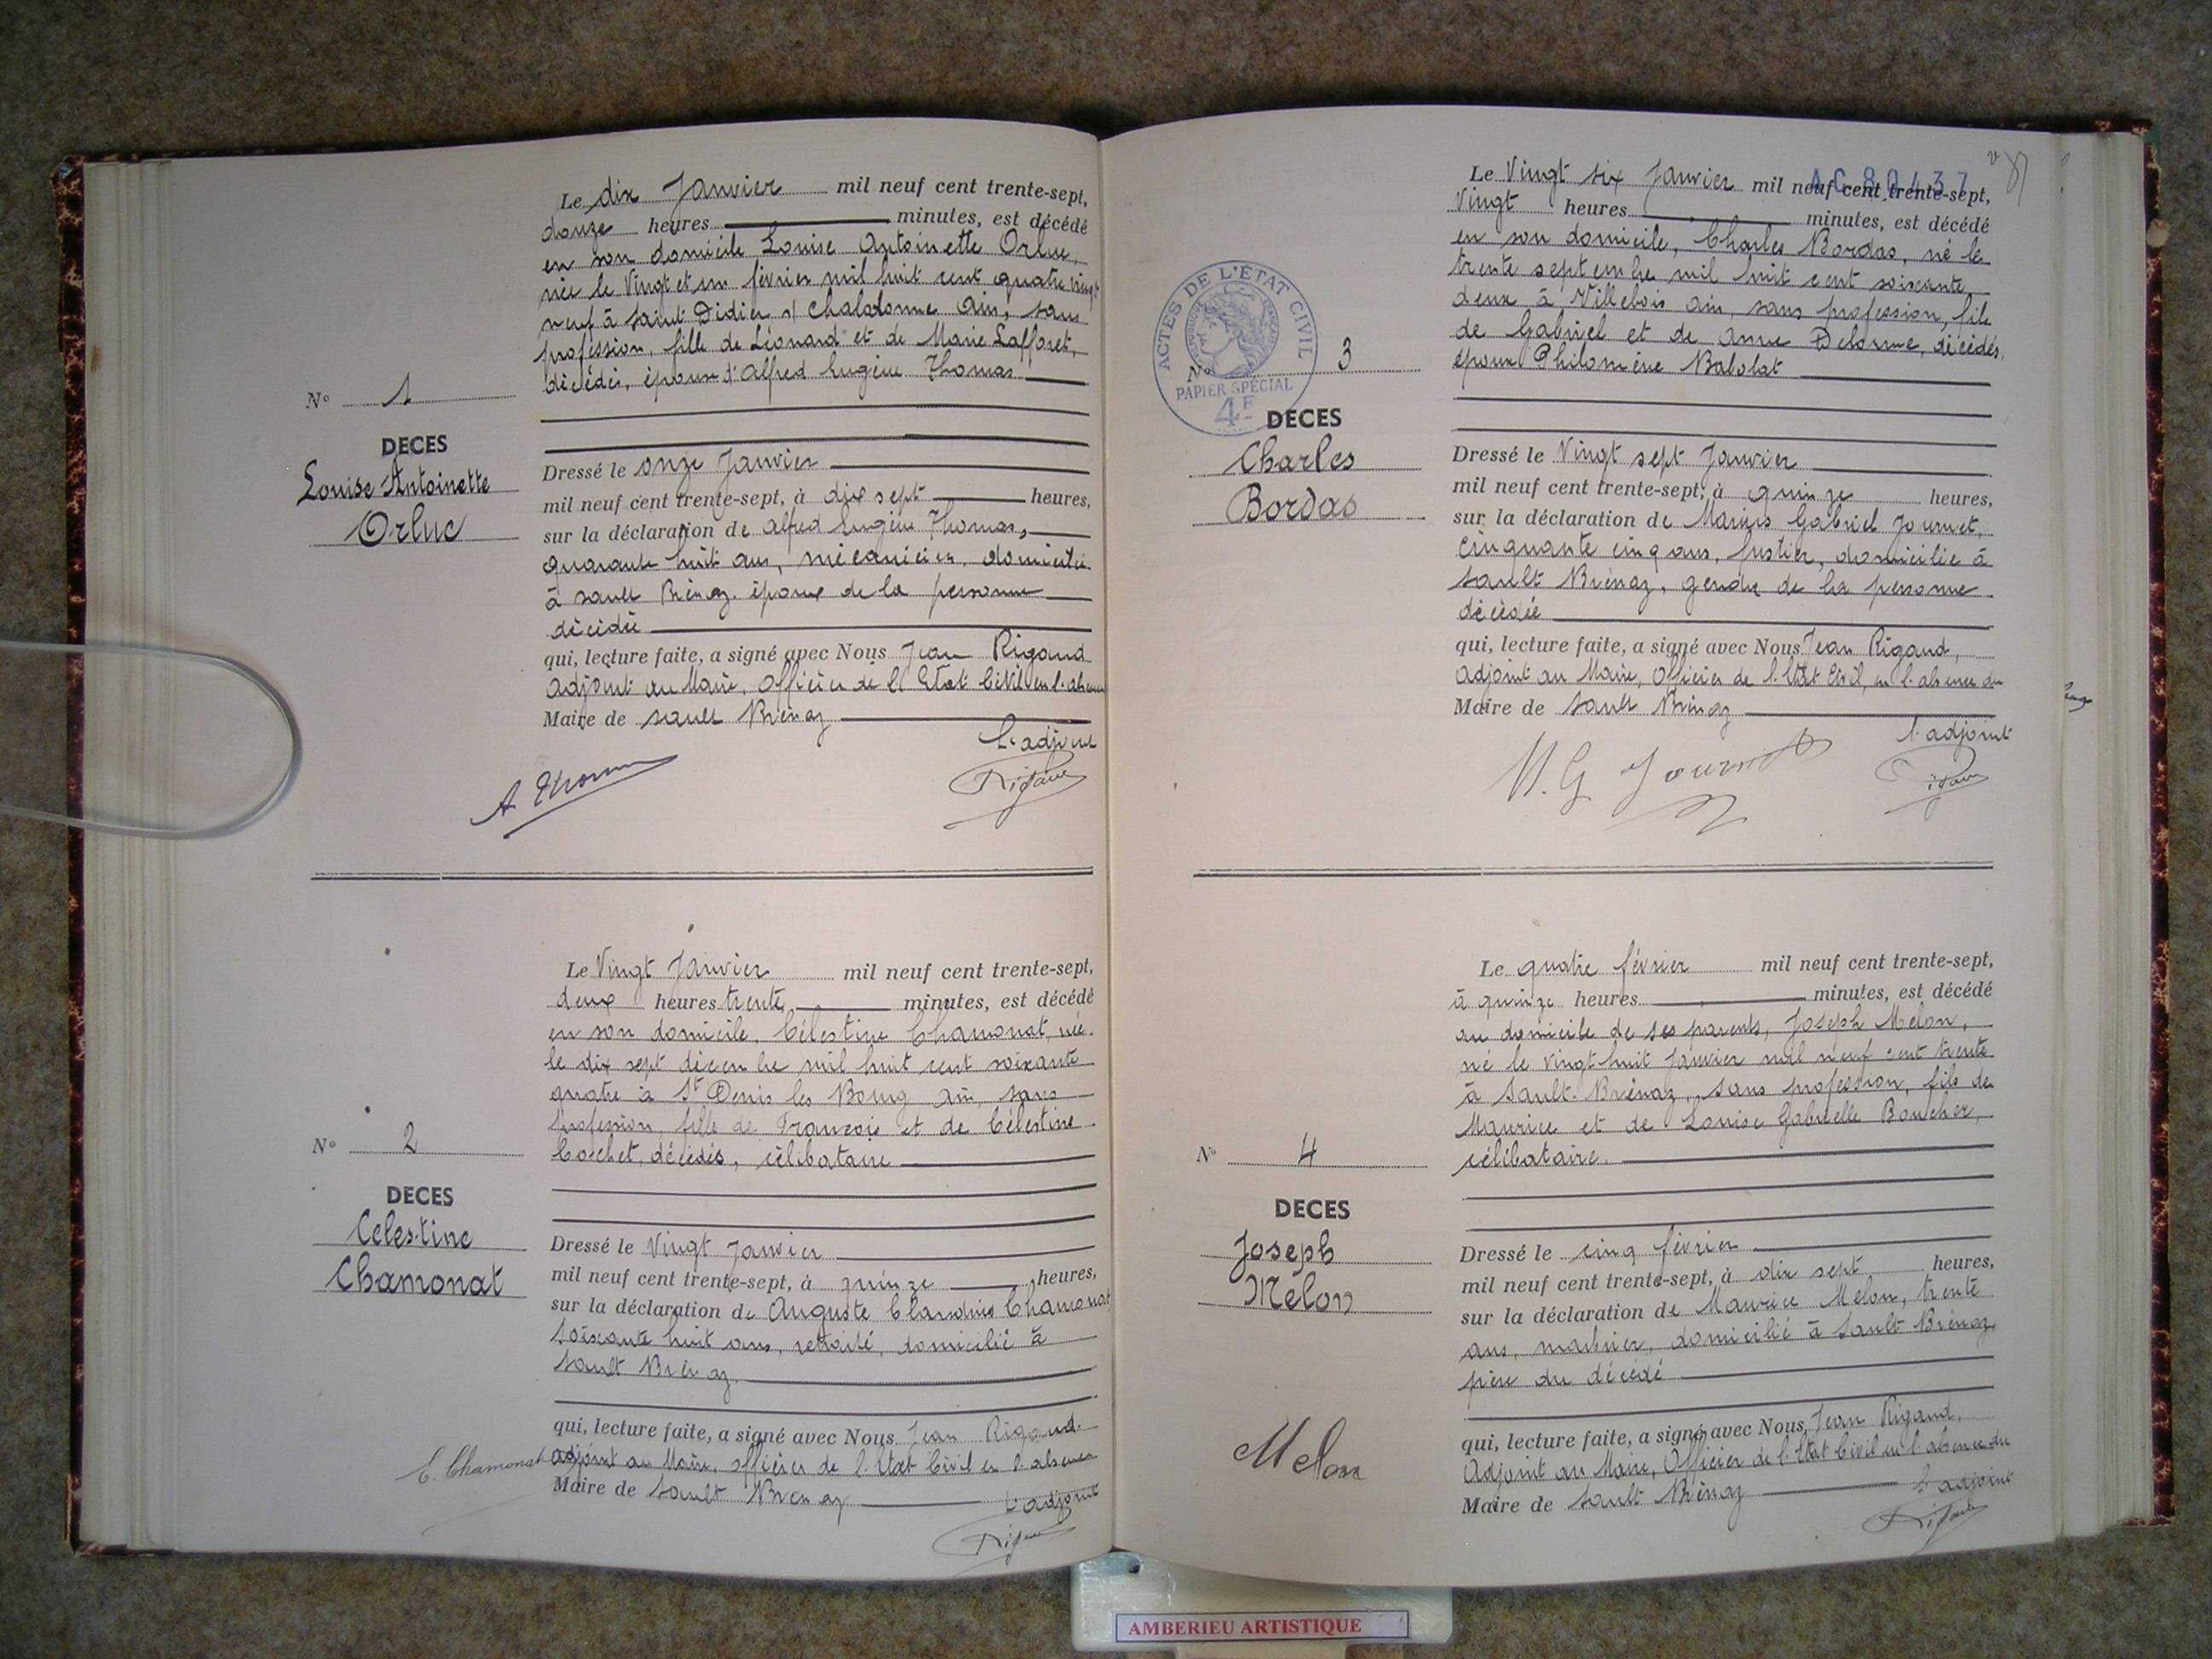 Le dix Janvier mil neuf cent trente-sept,
douze heures minutes, est décédé
en son domicile Louise Antoinette Orluc,
née le Vingt et un février mil huit cent quatre vingt
neuf à Saint Didier s/ Chalaronne Ain, sans
profession, fille de Léonard et de Marie Lafforet,
décédés, épouse d'Alfred Eugène Thomas
No 1
DECES
Louise Antoinette
Orluc
Dressé le onze Janvier
mil neuf cent trente-sept, à dix sept heures,
sur la déclaration de Alfred Eugène Thomas,
quarante huit ans, mécanicien, domicilié
à Sault Brénaz, époux de la personne
décédée
qui, lecture faite, a signé avec Nous Jean Rigaud
Adjoint au Maire, Officier de l'Etat Civil en l'absence
Maire de Sault Brénaz
L'adjoint
A Thomas
Rigaud
Le Vingt Janvier mil neuf cent trente-sept,
deux heures trente minutes, est décédé
en son domicile, Célestine Chamonat, née
le dix sept décembre mil huit cent soixante
quatre à St Denis les Bourg Ain, sans
profession, fille de François et de Célestine
Cochet, décédés, célibataire
No 2
DECES
Celestine
Chamonat
Dressé le Vingt Janvier
mil neuf cent trente-sept, à quinze heures,
sur la déclaration de Auguste Claudius Chamonat
soixante huit ans, retraité, domicilié à
Sault Brénaz.
qui, lecture faite, a signé avec Nous Jean Rigaud
adjoint au Maire, officier de l'Etat Civil en l'absence
E. Chamonat
Maire de Sault Brénaz
L'adjoint
Rigaud
Le Vingt six Janvier mil neuf cent trente-sept,
Vingt heures minutes, est décédé
en son domicile, Charles Bordas, né le
trente septembre mil huit cent soixante
deux à Villebois Ain, sans profession, fils
de Gabriel et de Anne Delorme, décédés,
époux Philomène Babolat
ACTES DE L'ÉTAT CIVIL
PAPIER SPÉCIAL
4F
No 3
DECES
Charles
Bordas
Dressé le Vingt sept Janvier
mil neuf cent trente-sept, à quinze heures,
sur la déclaration de Marius Gabriel Journet,
cinquante cinq ans, fustier, domicilié à
Sault Brénaz, gendre de la personne
décédée
qui, lecture faite, a signé avec Nous Jean Rigaud,
Adjoint au Maire, Officier de l'Etat Civil, en l'absence du
Maire de Sault Brénaz
l'adjoint
M. G Journet
Rigaud
Le quatre février mil neuf cent trente-sept,
à quinze heures minutes, est décédé
au domicile de ses parents, Joseph Melon,
né le vingt huit Janvier mil neuf cent trente
à Sault-Brénaz, sans profession, fils de
Maurice et de Louise Gabrielle Boucher,
célibataire.
No 4
DECES
Joseph
Melon
Dressé le cinq février
mil neuf cent trente-sept, à dix sept heures,
sur la déclaration de Maurice Melon, trente
ans, marbrier, domicilié à Sault-Brénaz,
père du décédé
qui, lecture faite, a signé avec Nous Jean Rigaud,
Adjoint au Maire, Officier de l'Etat Civil en l'absence du
Maire de Sault Brénaz
l'adjoint
Melon
Rigaud
AMBERIEU ARTISTIQUE